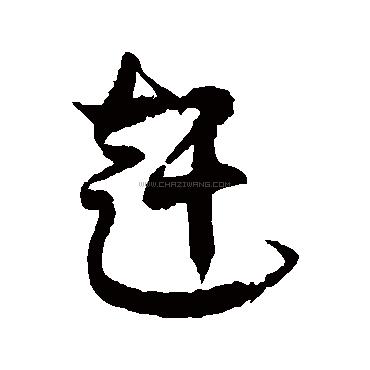 赶
WWW.CHAZIWANG.COM